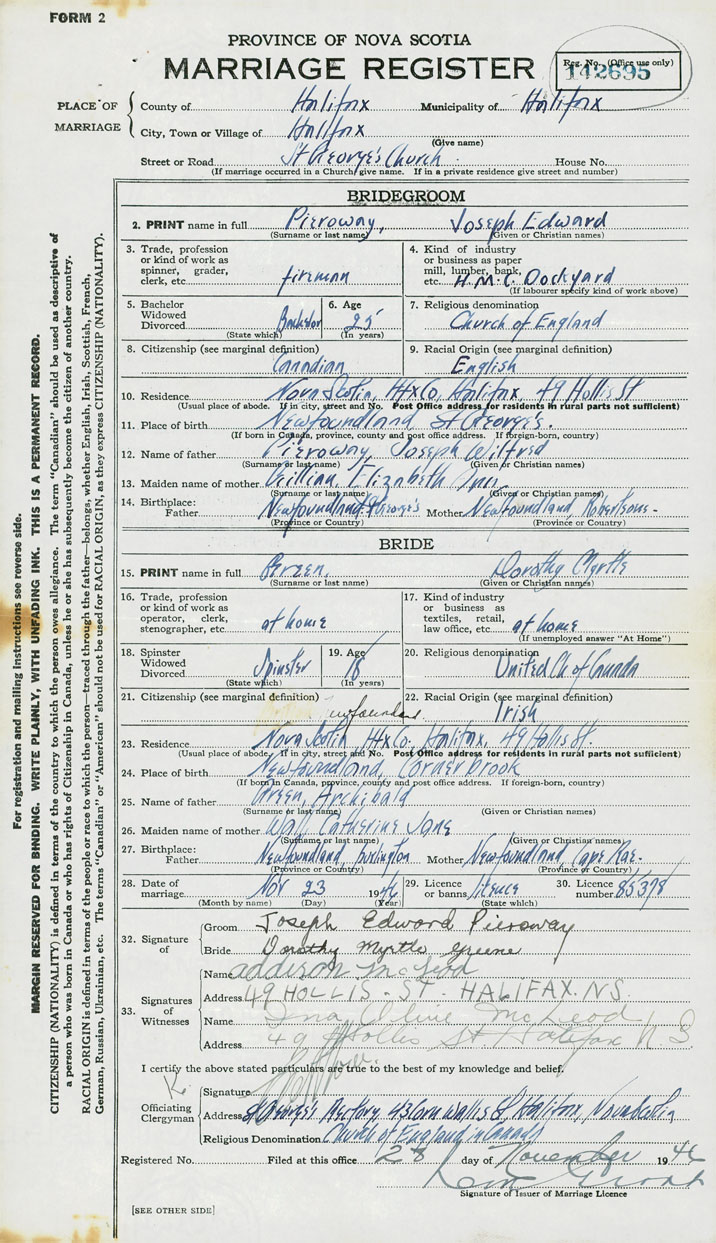 FORM 2
PROVINCE OF NOVA SCOTIA
MARRIAGE REGISTER
Reg. No. (Office use only)
142695
PLACE OF MARRIAGE
County of Halifax Municipality of Halifax
City, Town or Village of Halifax
(Give name)
Street or Road St George's Church House No.
(If marriage occurred in a Church, give name. If in a private residence give street and number)
BRIDEGROOM
2. PRINT name in full Pieroway, Joseph Edward
(Surname or last name) (Given or Christian names)
3. Trade, profession or kind of work as spinner, grader, clerk, etc. fireman
4. Kind of industry or business as paper mill, lumber, bank, etc. H.M.C. Dockyard
(If labourer specify kind of work above)
5. Bachelor Widowed Divorced Bachelor
(State which)
6. Age 25
(In years)
7. Religious denomination
Church of England
8. Citizenship (see marginal definition)
Canadian
9. Racial Origin (see marginal definition)
English
10. Residence Nova Scotia, Hfx Co, Halifax, 49 Hollis St
(Usual place of abode. If in city, street and No. Post Office address for residents in rural parts not sufficient)
11. Place of birth Newfoundland St George's.
(If born in Canada, province, county and post office address. If foreign-born, country)
12. Name of father Pieroway, Joseph Wilfred
(Surname or last name) (Given or Christian names)
13. Maiden name of mother Elizabeth
(Surname or last name) (Given or Christian names)
14. Birthplace: Father Newfoundland St George's Mother Newfoundland, Robertsons-
(Province or Country) (Province or Country)
BRIDE
15. PRINT name in full Dorothy Myrtle
(Surname or last name) (Given or Christian names)
16. Trade, profession or kind of work as operator, clerk, stenographer, etc. at home
17. Kind of industry or business as textiles, retail, law office, etc. at home
(If unemployed answer "At Home")
18. Spinster Widowed Divorced Spinster
(State which)
19. Age 18
(In years)
20. Religious denomination
United Ch of Canada
21. Citizenship (see marginal definition)
Newfoundland
22. Racial Origin (see marginal definition)
Irish
23. Residence Nova Scotia, Hfx Co. Halifax, 49 Hollis St.
(Usual place of abode. If in city, street and No. Post Office address for residents in rural parts not sufficient)
24. Place of birth Newfoundland, Corner brook
(If born in Canada, province, county and post office address. If foreign-born, country)
25. Name of father Green, Archibald
(Surname or last name) (Given or Christian names)
26. Maiden name of mother Wall, Catherine Jane
(Surname or last name) (Given or Christian names)
27. Birthplace: Father Newfoundland, Burlington Mother Newfoundland Cape Rae-
(Province or Country) (Province or Country)
28. Date of marriage Nov 23 1946
(Month by name) (Day) (Year)
29. Licence or banns licence
(State which)
30. Licence number 85378
32. Signature of
Groom Joseph Edward Pieroway
Bride Dorothy Myrtle Greene
33. Signatures of Witnesses
Name addison mcLeod
Address 49 HOLLIS - ST - HALIFAX. N.S.
Name Ina Olive McLeod
Address 49 Hollis St Halifax N S
I certify the above stated particulars are true to the best of my knowledge and belief.
Officiating Clergyman
Signature
Address St George's Rectory, 43 Cornwallis St, Halifax, Nova Scotia
Religious Denomination Church of England in Canada
Registered No. Filed at this office 28 day of November 1946
Signature of Issuer of Marriage Licence
[SEE OTHER SIDE]
For registration and mailing instructions see reverse side.
MARGIN RESERVED FOR BINDING. WRITE PLAINLY, WITH UNFADING INK. THIS IS A PERMANENT RECORD.
CITIZENSHIP (NATIONALITY) is defined in terms of the country to which the person owes allegiance. The term "Canadian" should be used as descriptive of
a person who was born in Canada or who has rights of Citizenship in Canada, unless he or she has subsequently become the citizen of another country.
RACIAL ORIGIN is defined in terms of the people or race to which the person—traced through the father—belongs, whether English, Irish, Scottish, French,
German, Russian, Ukrainian, etc. The terms "Canadian" or "American" should not be used for RACIAL ORIGIN, as they express CITIZENSHIP (NATIONALITY).